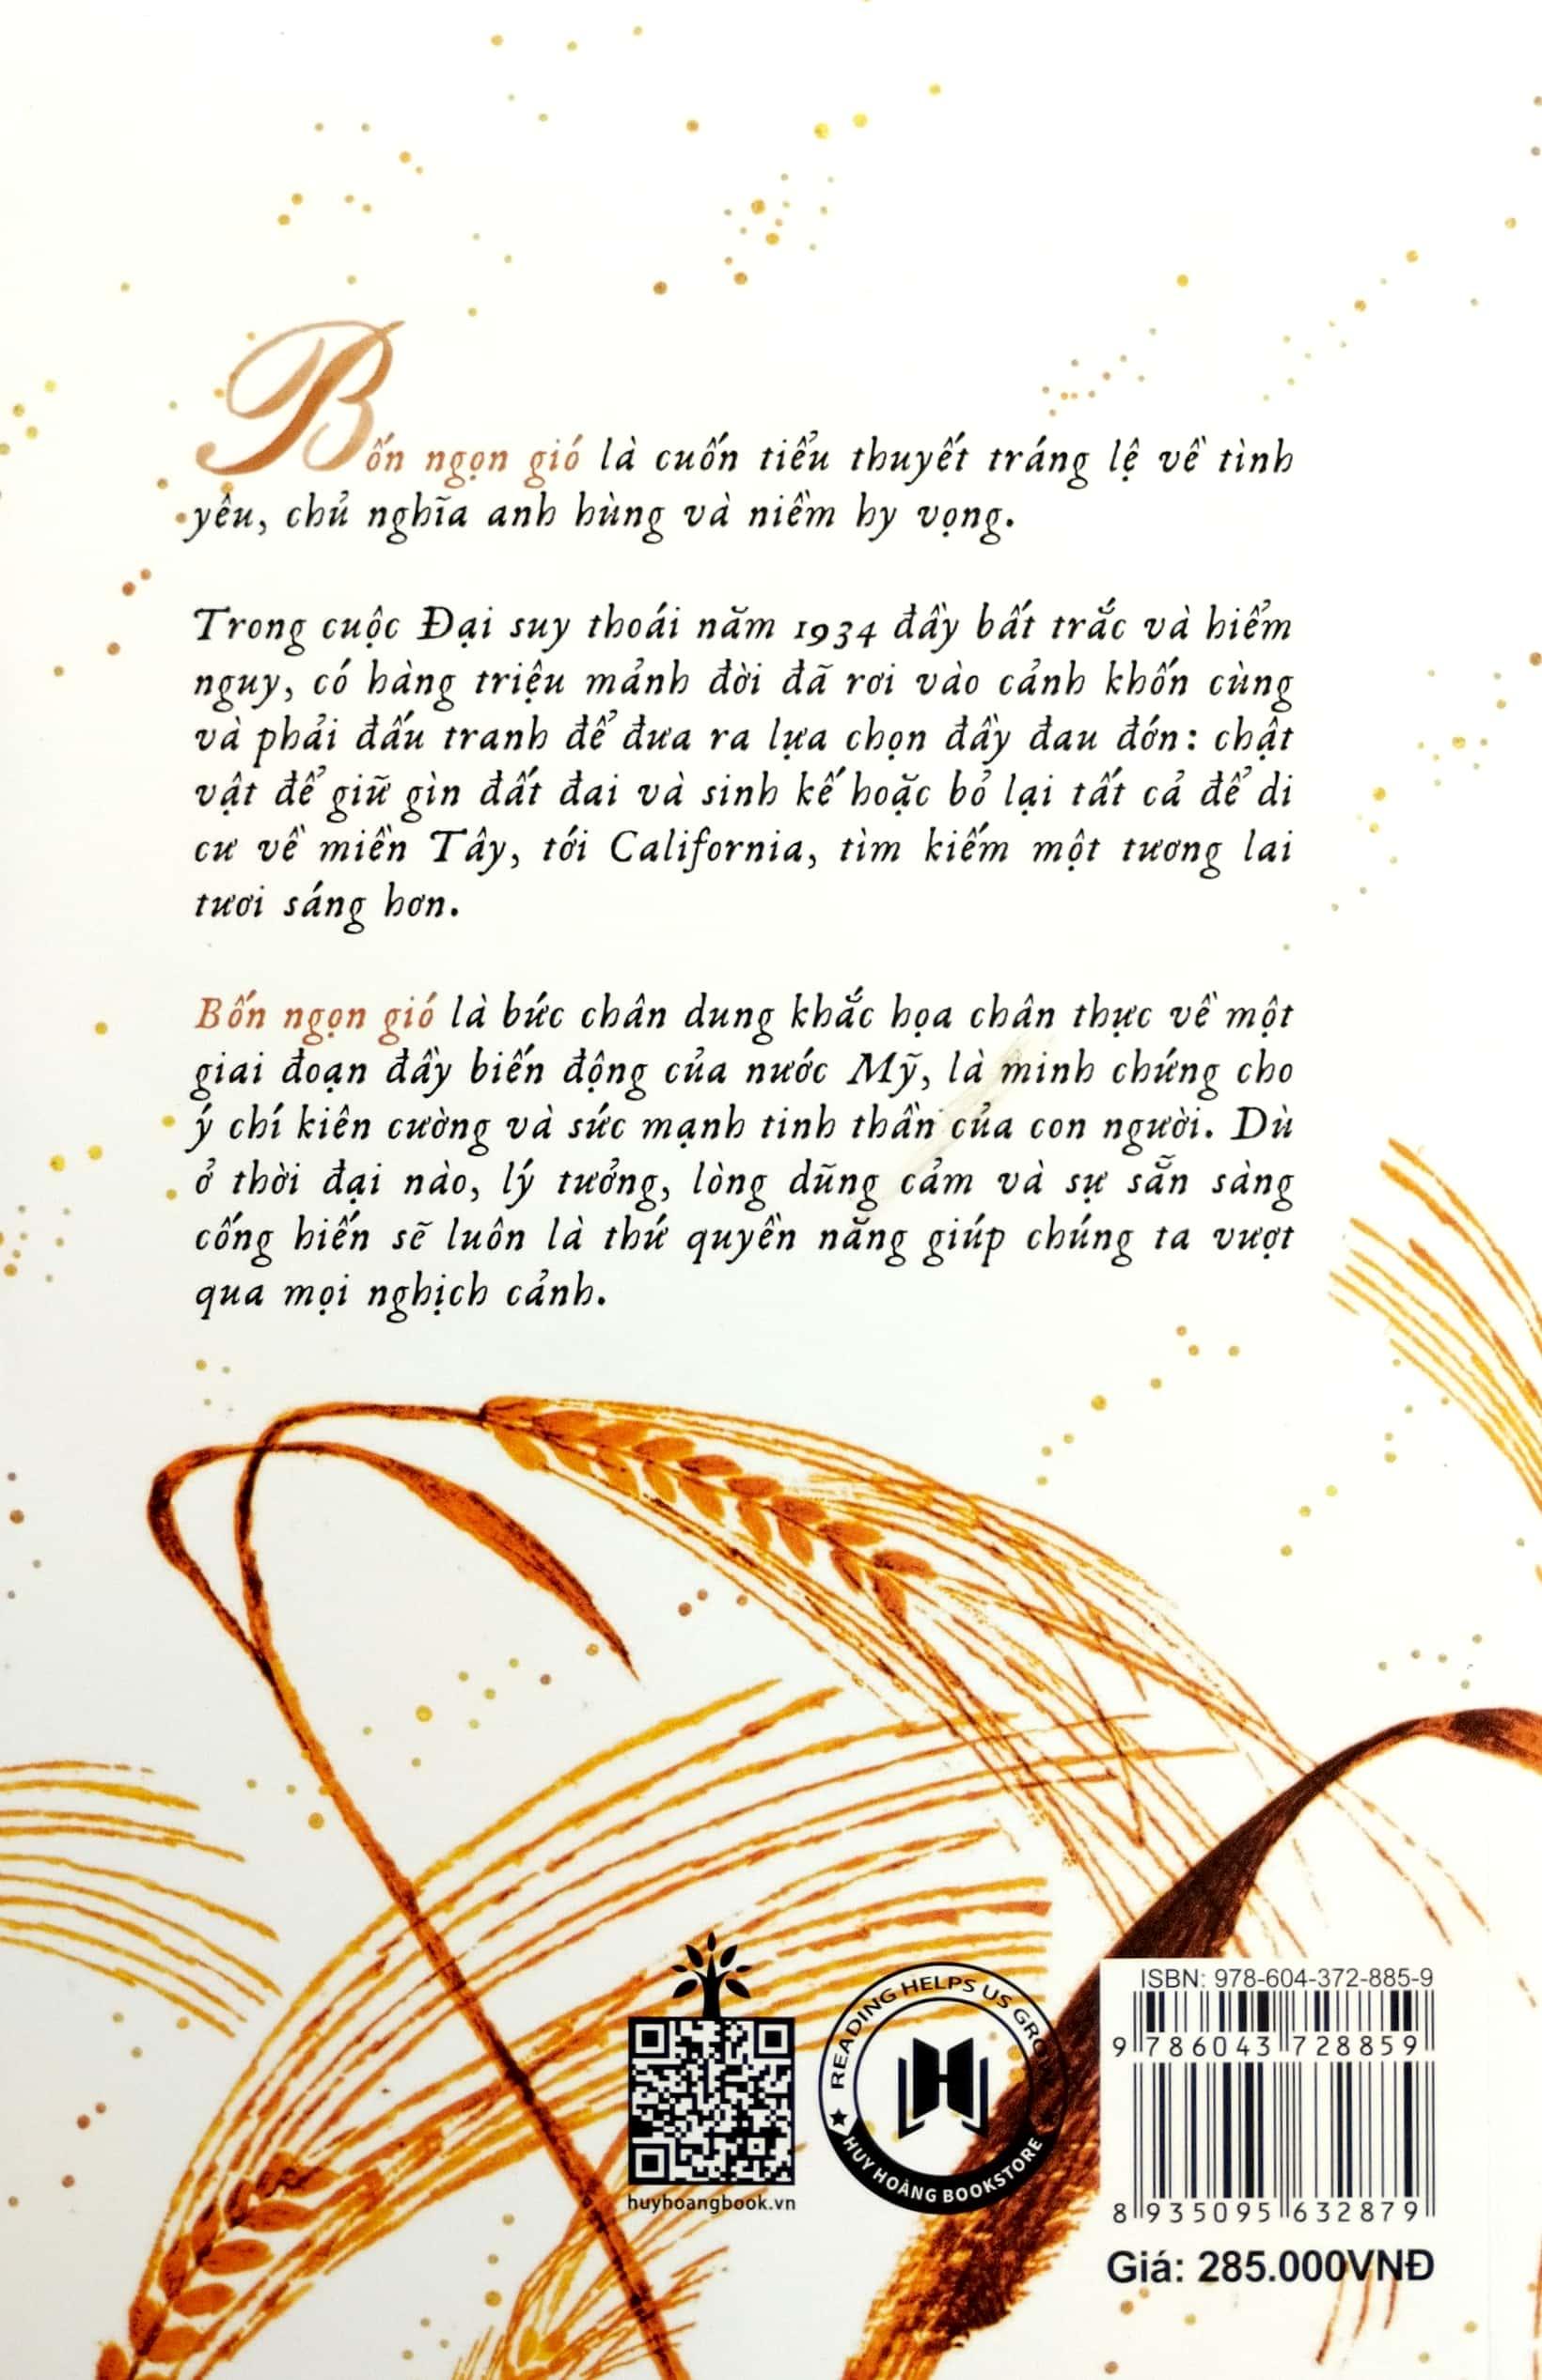 Bốn ngọn gió là cuốn tiểu thuyết tráng lệ về tình
yêu, chủ nghĩa anh hùng và niềm hy vọng.
Trong cuộc Đại suy thoái năm 1934 đầy bất trắc và hiểm
nguy, có hàng triệu mảnh đời đã rơi vào cảnh khốn cùng
và phải đấu tranh để đưa ra lựa chọn đầy đau đớn: chật
vật để giữ gìn đất đai và sinh kế hoặc bỏ lại tất cả để di
cư về miền Tây, tới California, tìm kiếm một tương lai
tươi sáng hơn.
Bốn ngọn gió là bức chân dung khắc họa chân thực về một
giai đoạn đầy biến động của nước Mỹ, là minh chứng cho
ý chí kiên cường và sức mạnh tinh thần của con người. Dù
ở thời đại nào, lý tưởng, lòng dũng cảm và sự sẵn sàng
cống hiến sẽ luôn là thứ quyền năng giúp chúng ta vượt
qua mọi nghịch cảnh.
huyhoangbook.vn
READING HELPS US GROW
HUY HOÀNG BOOKSTORE
ISBN: 978-604-372-885-9
9 786043 728859
8 935095 632879
Giá: 285.000VNĐ